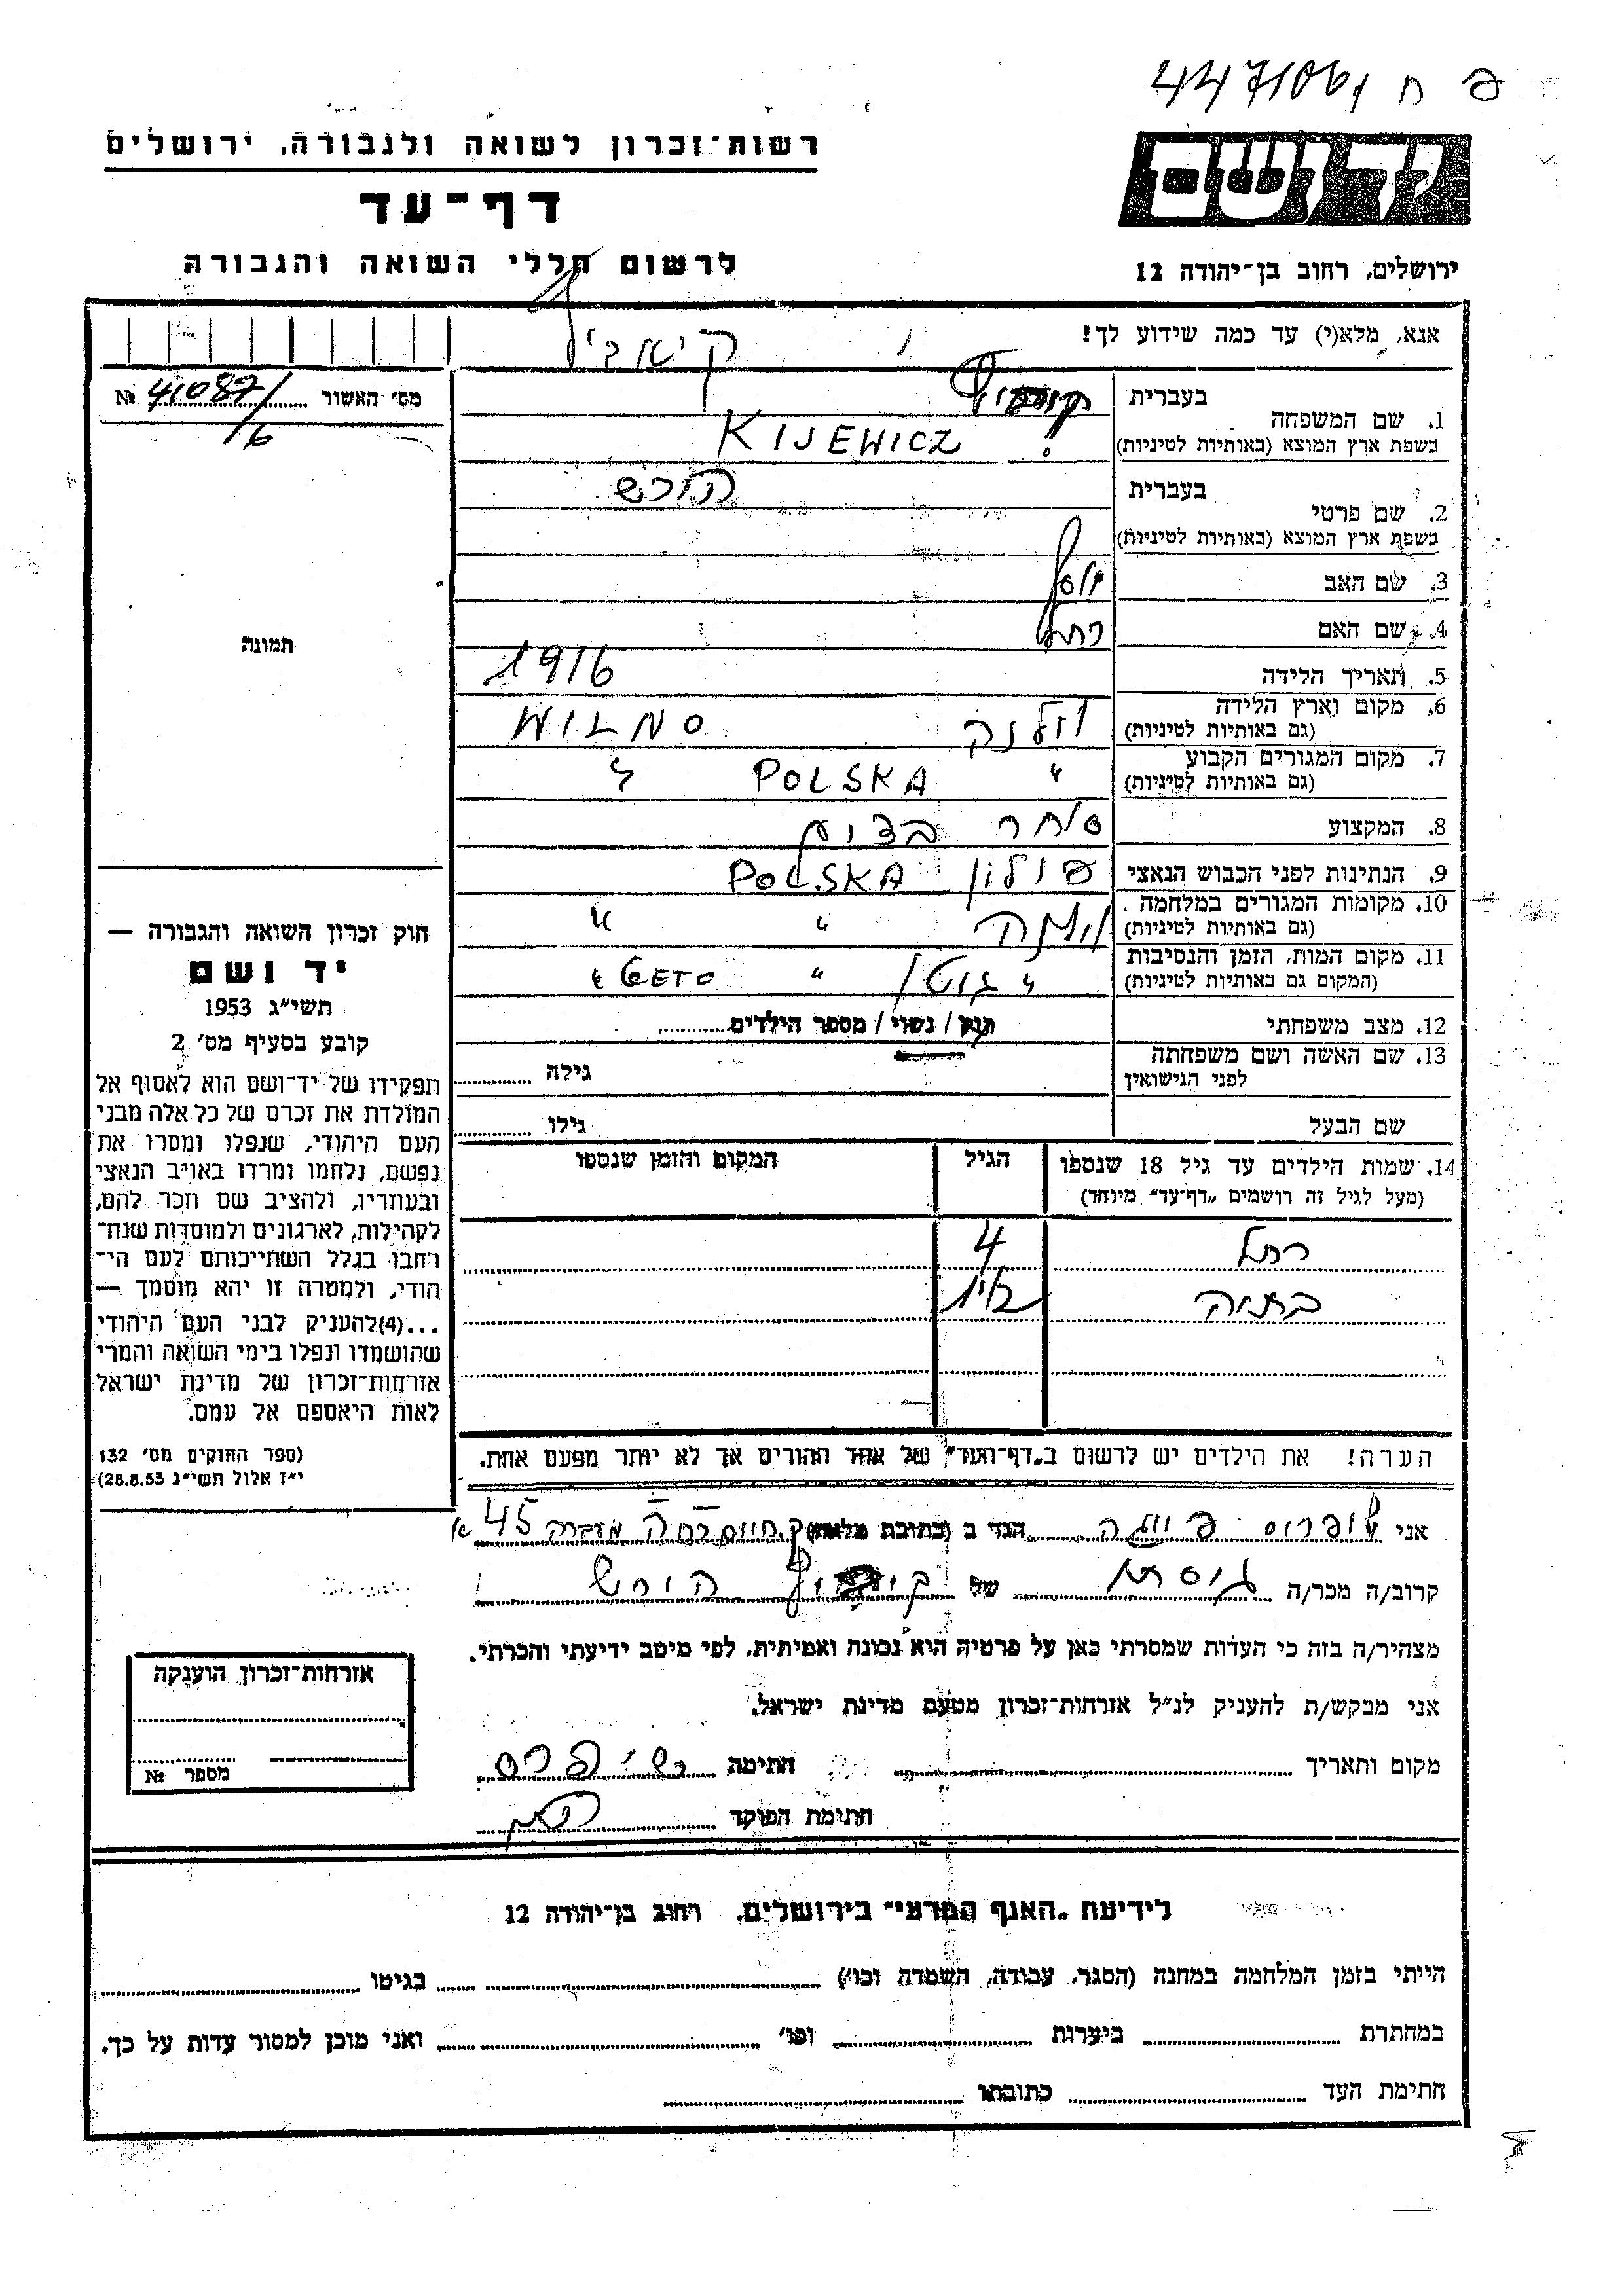 פ ח 447106/
רשות־זכרון לשואה ולגבורה, ירושלים
יד ושם
דף־עד
לרשום חללי השואה והגבורה
ירושלים, רחוב בן־יהודה 12
אנא, מלא(י) עד כמה שידוע לך!
מס׳ האשור № 41087/
6
תמונה
בעברית
1. שם המשפחה
בשפת ארץ המוצא (באותיות לטיניות) KIJEWICZ
בעברית הירש
2. שם פרטי
בשפת ארץ המוצא (באותיות לטיניות)
3. שם האב יוסף
4. שם האם רחל
5. תאריך הלידה 1916
6. מקום וארץ הלידה
(גם באותיות לטיניות) וילנה WILNO
7. מקום המגורים הקבוע
(גם באותיות לטיניות) " POLSKA "
8. המקצוע סוחר בדים
9. הנתינות לפני הכבוש הנאצי פולין POLSKA
10. מקומות המגורים במלחמה
(גם באותיות לטיניות) וילנה " "
11. מקום המות, הזמן והנסיבות
(המקום גם באותיות לטיניות) " גיטו " GETO "
12. מצב משפחתי רווק / נשוי / מספר הילדים
13. שם האשה ושם משפחתה
לפני הנישואין
גילה
שם הבעל גילו
14. שמות הילדים עד גיל 18 שנספו הגיל המקום והזמן שנספו
(מעל לגיל זה רושמים „דף־עד” מיוחד)
רחל 4
בתיה
הערה! את הילדים יש לרשום ב„דף־העד” של אחד ההורים אך לא יותר מפעם אחת.
חוק זכרון השואה והגבורה —
יד ושם
תשי״ג 1953
קובע בסעיף מס׳ 2
תפקידו של יד־ושם הוא לאסוף אל
המולדת את זכרם של כל אלה מבני
העם היהודי, שנפלו ומסרו את
נפשם, נלחמו ומרדו באויב הנאצי
ובעוזריו, ולהציב שם וזכר להם,
לקהילות, לארגונים ולמוסדות שנח־
רחבו בגלל השתייכותם לעם הי־
הודי, ולמטרה זו יהא מוסמך —
...(4)להעניק לבני העם היהודי
שהושמדו ונפלו בימי השואה והמרי
אזרחות־זכרון של מדינת ישראל
לאות היאספם אל עמם.
(ספר החוקים מס׳ 132
י״ז אלול תשי״ג 28.8.53)
אני הגר ב (כתובת מלאה) ק חיים 45 א
קרוב/ה מכר/ה גיסתו של הירש
מצהיר/ה בזה כי העדות שמסרתי כאן על פרטיה הוא נכונה ואמיתית, לפי מיטב ידיעתי והכרתי.
אני מבקש/ת להעניק לנ״ל אזרחות־זכרון מטעם מדינת ישראל.
מקום ותאריך חתימה
חתימת הפוקד
אזרחות־זכרון הוענקה
מספר №
לידיעת „האגף המדעי” בירושלים, רחוב בן־יהודה 12
הייתי בזמן המלחמה במחנה (הסגר, עבודה, השמדה וכו׳) בגיטו
במחתרת ביערות וכו׳ ואני מוכן למסור עדות על כך.
חתימת העד כתובתו